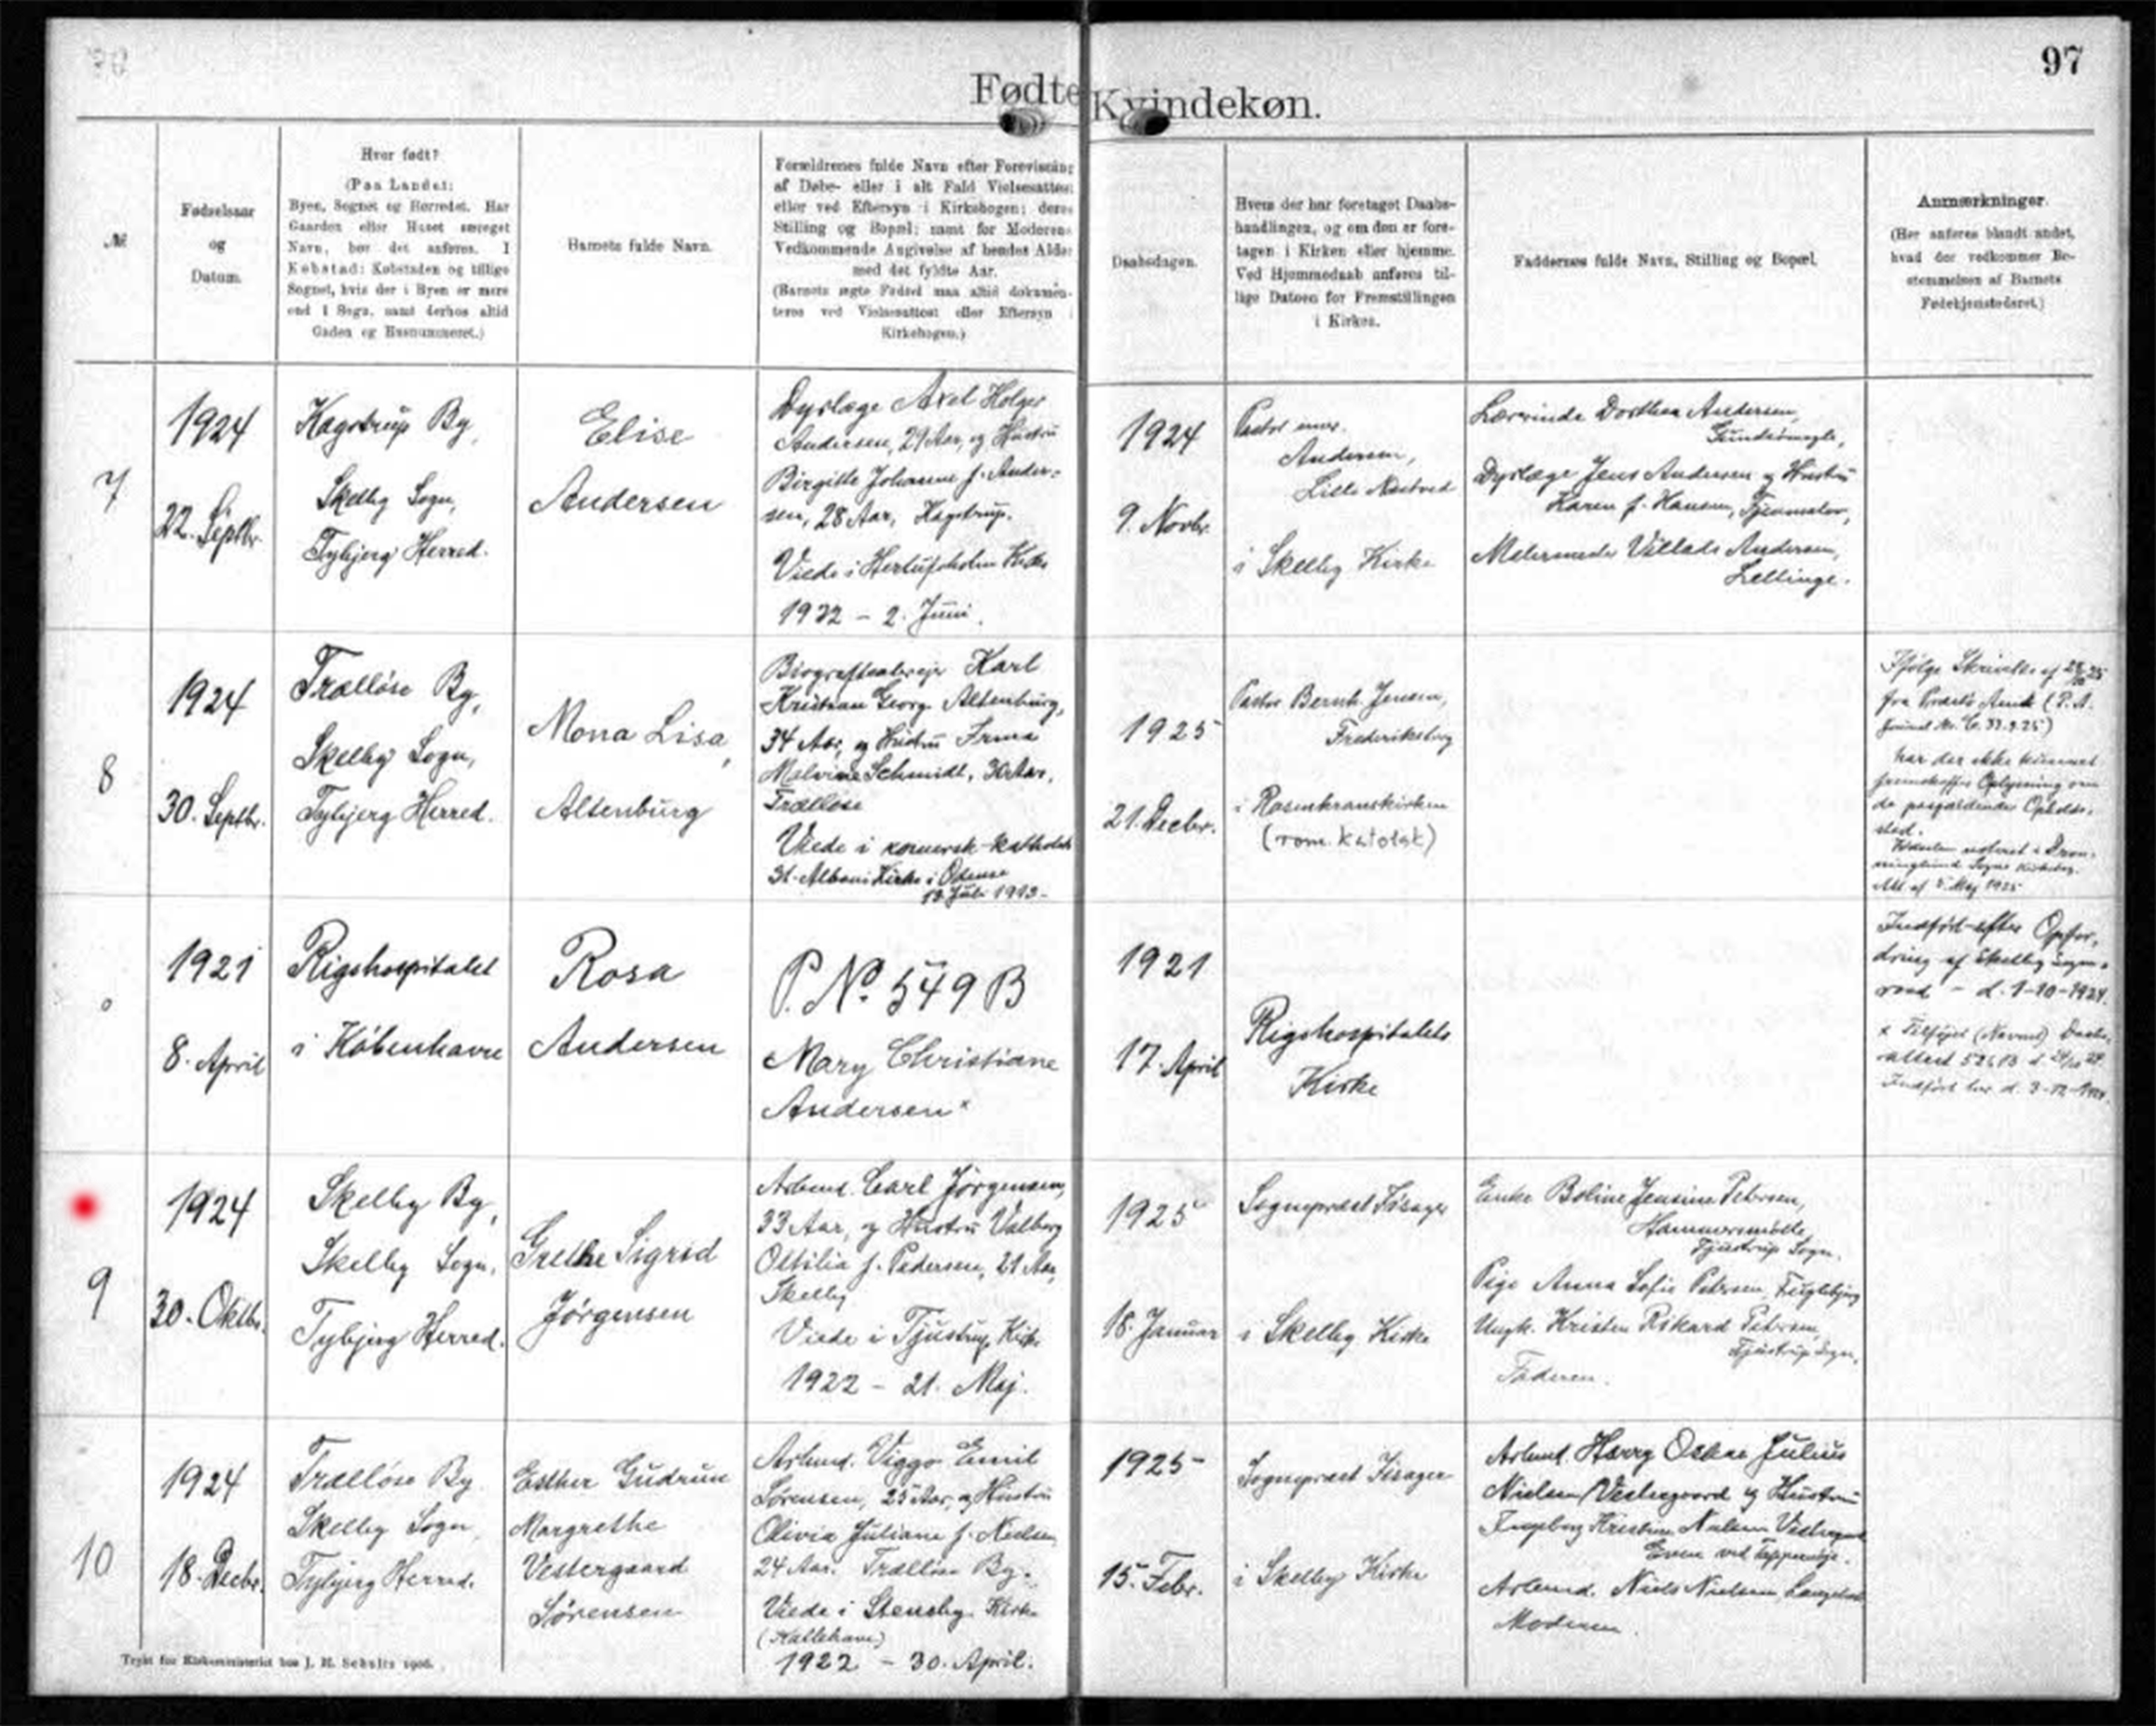 97
Fødte Kvindekøn.
№
Fødselsaar
og
Datum.
Hvor født?
(Paa Landet:
Byen, Sognet og Herredet. Har
Gaarden eller Huset særeget
Navn, bør det anføres. I
Købstad: Købstaden og tillige
Sognet, hvis der i Byen er mere
end 1 Sogn, samt derhos altid
Gaden og Husnummeret.)
Barnets fulde Navn.
Forældrenes fulde Navn efter Forevisning
af Døbe- eller i alt Fald Vielsesattest
eller ved Eftersyn i Kirkebogen; deres
Stilling og Bopæl; samt for Moderens
Vedkommende Angivelse af hendes Alder
med det fyldte Aar.
(Barnets ægte Fødsel maa altid dokumen-
teres ved Vielsesattest eller Eftersyn i
Kirkebogen.)
Daabsdagen.
Hvem der har foretaget Daabs-
handlingen, og om den er fore-
tagen i Kirken eller hjemme.
Ved Hjemmedaab anføres til-
lige Datoen for Fremstillingen
i Kirken.
Faddernes fulde Navn, Stilling og Bopæl.
Anmærkninger.
(Her anføres blandt andet,
hvad der vedkommer Be-
stemmelsen af Barnets
Fødehjemstedsret.)
7
1924
22. Septbr.
Kagstrup By,
Skelby Sogn,
Tybjerg Herred.
Elise
Andersen
Dyrlæge Axel Holger
Andersen, 29 Aar, og Hustru
Birgitte Johanne f. Ander-
sen, 28 Aar, Kagstrup.
Viede i Herlufsholm Kirke
1922 - 2. Juni.
1924
9. Novbr.
Pastor emer.
Andersen,
Lille Næstved
i Skelby Kirke
Lærerinde Dorthea Andersen,
Gundsømagle,
Dyrlæge Jens Andersen og Hustru
Karen f. Hansen,
Villads Andersen,
Lellinge.
8
1924
30. Septbr.
Trælløse By,
Skelby Sogn,
Tybjerg Herred.
Mona Lisa,
Altenburg
Biografteaterejer Karl
Kristian Georg Altenburg,
34 Aar, og Hustru Irma
Malvine Schmidt, 30 Aar,
Trælløse
Viede i romersk-katholsk
St. Albani Kirke i Odense
19. Juli 1913-
1925
21. Decbr.
Pastor Bernh. Jensen,
Frederiksberg
i Rosenkranskirken
(rom. katolsk)
Ifølge Skrivelse af
fra Præstø Amt (P.A.
har der ikke kunnet
fremskaffes Oplysning om
de paagældendes Opholds-
sted.
Fødselen noteret i Dron-
ninglund Sogns Kirkebog.
Att. af 5 Maj 1925
o
1921
8. April
Rigshospitalet
i København
Rosa
Andersen
P. No. 549 B
Mary Christiane
Andersen x
1921
17. April
Rigshospitalets
Kirke
Indført efter Opfor-
dring af Skelby Sogne-
raad - d. 1-10-1924.
x Tilføjet (Navnet) Daabs-
attest
Indført her d. 3-12-1924.
9
1924
30. Oktbr.
Skelby By,
Skelby Sogn,
Tybjerg Herred.
Grethe Sigrid
Jørgensen
Arbmd. Carl Jørgensen,
33 Aar, og Hustru Valborg
Ottilia f. Pedersen, 21 Aar,
Skelby
Viede i Tjustrup Kirke
1922 - 21. Maj.
1925
18. Januar
Sognepræst Fisager
i Skelby Kirke
Enke Boline Jensine Petersen,
Hammersmølle,
Tjustrup Sogn.
Pige Anna Sofie Petersen, Fuglebjerg
Ungk. Kristen Rikard Petersen,
Tjustrup Sogn,
Faderen.
10
1924
18. Decbr.
Trælløse By
Skelby Sogn,
Tybjerg Herred.
Esther Gudrun
Margrethe
Vestergaard
Sørensen
Arbmd. Viggo Emil
Sørensen, 25 Aar, og Hustru
Olivia Juliane f. Nielsen
24 Aar. Trælløse By.
Viede i Stensby Kirke
(Kallehave)
1922 - 30. April.
1925
15. Febr.
Sognepræst Fisager
i Skelby Kirke
Arbmd. Harry Oskar Julius
Nielsen Vestergaard og Hustru
Ingeborg Kristine Nielsen Vestergaard
Even ved Tappernøje.
Arbmd. Niels Nielsen,
Moderen.
Trykt for Kirkeministeriet hos J. H. Schultz 1906.